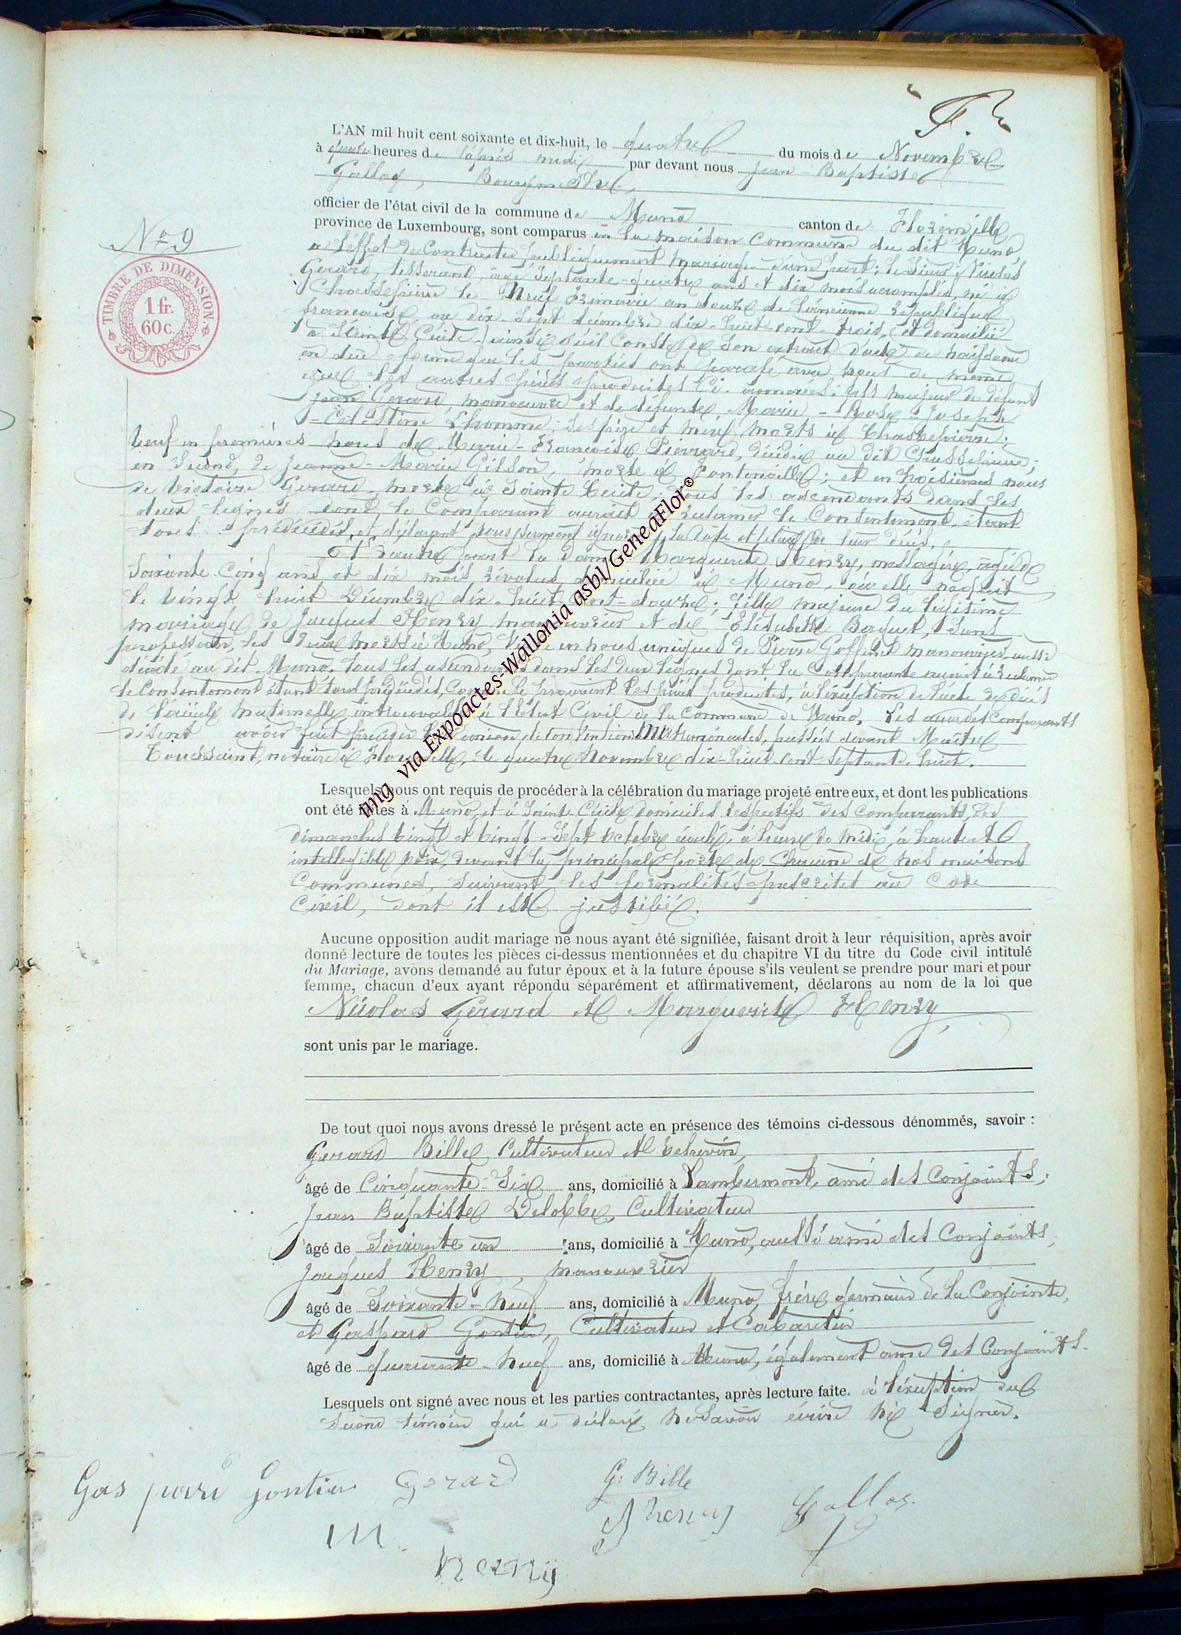 F.
L'AN mil huit cent soixante et dix-huit, le quatre du mois de Novembre
à quatre heures de l'après midi par devant nous Jean-Baptiste
Gallas, Bourgmestre,
officier de l'état civil de la commune de Muno canton de Florenville
province de Luxembourg, sont comparus en la maison Commune du dit Muno,
N° 9
TIMBRE DE DIMENSION
1 fr.
60 c.
à l'effet de Contracter publiquement mariage d'une part: le Sieur Nicolas
Gerard, tisserand, âgé Septante-quatre ans et dix mois accomplis, né à
Chassepierre le frimaire an douze de l'ancienne République
française ou dix-Sept décembre dix-huit cent trois, et domicilié
à Sainte Cécile, ainsi qu'il Conste de Son extrait d'acte de naissance
en due forme que les parties ont paraphé avec nous de même
que les autres pièces produites; fils majeur de défunt
Jean Gerard, manoeuvre et de défunte Marie-Rose-Josèphe
-Célestine Lhomme, Ses père et mère morts à Chassepierre;
Veuf en premières noces de Marie-Françoise Pierrard, décédée au dit Chassepierre;
en Second, de Jeanne-Marie Gilson, morte à Fontenoille; et en troisièmes noces
de Victoire Gerard, morte à Sainte Cécile. Tous les ascendants dans les
deux lignes dont le Comparant aurait à réclamer le Consentement, étant
tous prédécédés, et déclarant sous serment ignorer la date et place de leur décès.
Et d'autre part la Dame Marguerite Henry, ménagère, âgée de
Soixante-Cinq ans et dix mois révolus, domiciliée à Muno, où elle naquit
le vingt huit Décembre dix-huit cent-douze; fille majeure du légitime
mariage de Jacques Henry manouvrier et de Elisabeth Baquet, Sans
profession, les deux morts à Muno, Veuve en noces uniques de Pierre Goffinet manouvrier, aussi
décédé au dit Muno, Tous les ascendants dans les deux lignes dont la Comparante aurait à réclamer
le Consentement étant tous prédécédés, Comme le prouvent les pièces produites, à l'exception de l'acte de décès
de l'aïeule maternelle introuvable à l'Etat Civil de la Commune de Muno. Les deux dits Comparants
disent avoir fait passer Convention matrimoniales, passées devant Maître
Toussaint, notaire à Florenville, le quatre Novembre dix-huit-cent-Septante-huit.
Lesquels nous ont requis de procéder à la célébration du mariage projeté entre eux, et dont les publications
ont été faites à Muno, et à Sainte Cécile domiciles respectifs des Comparants, les
dimanches vingt et vingt-Sept Octobre écoulé, à l'heure de midi, à haute et
intelligible voix, devant la principale porte de Chacune de nos maisons
Communes, Suivant les formalités prescrites au Code
Civil, dont il est justifié.
Aucune opposition audit mariage ne nous ayant été signifiée, faisant droit à leur réquisition, après avoir
donné lecture de toutes les pièces ci-dessus mentionnées et du chapitre VI du titre du Code civil intitulé
du Mariage, avons demandé au futur époux et à la future épouse s'ils veulent se prendre pour mari et pour
femme, chacun d'eux ayant répondu séparément et affirmativement, déclarons au nom de la loi que
Nicolas Gerard et Marguerite Henry,
sont unis par le mariage.
De tout quoi nous avons dressé le présent acte en présence des témoins ci-dessous dénommés, savoir :
Gerard Bille Cultivateur et Echevin,
âgé de Cinquante-Six ans, domicilié à Lambermont, ami des Conjoints;
Jean Baptiste Delobbe, Cultivateur
âgé de Soixante un ans, domicilié à Muno, aussi ami des Conjoints,
Jacques Henry, manouvrier
âgé de Soixante-neuf ans, domicilié à Muno, frère germain de la Conjointe,
et Gaspard Gontier, Cultivateur et Cabaretier
âgé de quarante-neuf ans, domicilié à Muno, également ami des Conjoints.
Lesquels ont signé avec nous et les parties contractantes, après lecture faite. à l'exception du
Second témoin qui a déclaré ne Savoir écrire ni Signer.
Gaspard Gontier Gerard G. Bille
J henry Gallas.
M.
henry
img via Expoactes-Wallonia asbl/GeneaFlor®